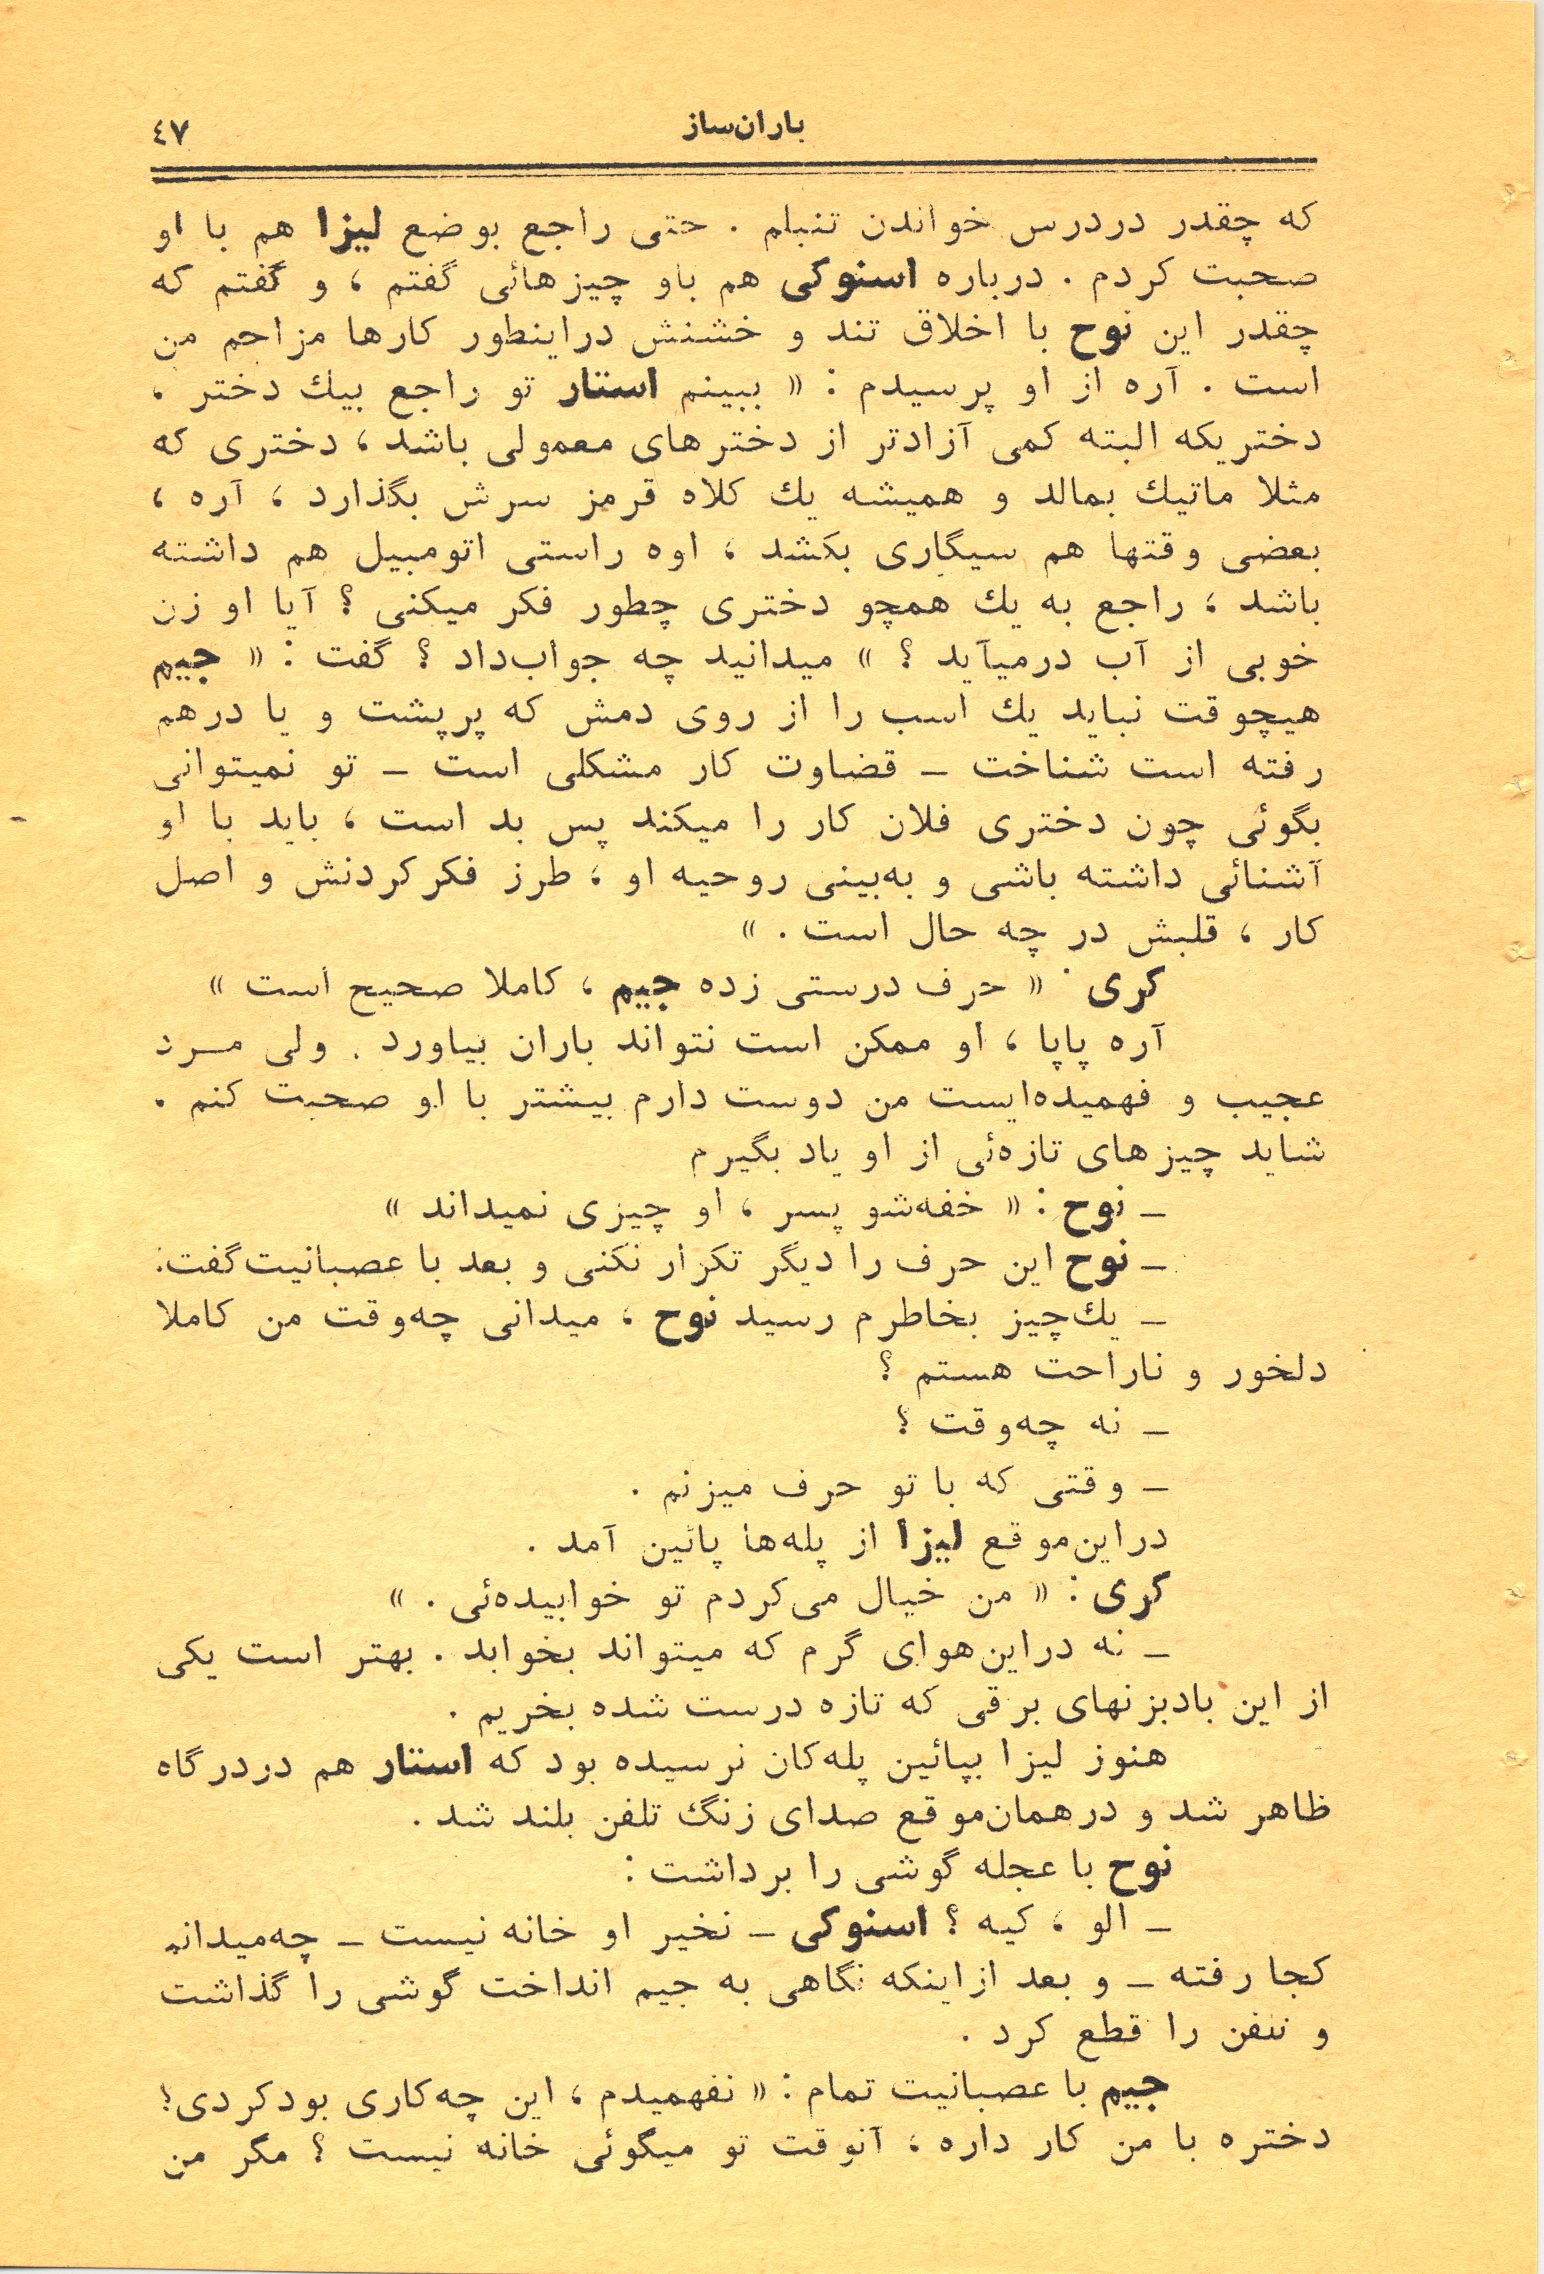 باران‌ساز
٤٧
که چقدر دردرس خواندن تنبلم . حتی راجع بوضع لیزا هم با او
صحبت کردم . درباره اسنوکی هم باو چیزهائی گفتم ، و گفتم که
چقدر این نوح با اخلاق تند و خشنش دراینطور کارها مزاحم من
است . آره از او پرسیدم : « ببینم استار تو راجع بیك دختر ،
دختریکه البته کمی آزادتر از دخترهای معمولی باشد ، دختری که
مثلا ماتیك بمالد و همیشه یك کلاه قرمز سرش بگذارد ، آره ،
بعضی وقتها هم سیگاری بکشد ، اوه راستی اتومبیل هم داشته
باشد ، راجع به یك همچو دختری چطور فکر میکنی ؟ آیا او زن
خوبی از آب درمیآید ؟ » میدانید چه جواب‌داد ؟ گفت : « جیم
هیچوقت نباید یك اسب را از روی دمش که پرپشت و یا درهم
رفته است شناخت – قضاوت کار مشکلی است – تو نمیتوانی
بگوئی چون دختری فلان کار را میکند پس بد است ، باید با او
آشنائی داشته باشی و به‌بینی روحیه او ، طرز فکرکردنش و اصل
کار ، قلبش در چه حال است . »
کری : « حرف درستی زده جیم ، کاملا صحیح است »
آره پاپا ، او ممکن است نتواند باران بیاورد . ولی مرد
عجیب و فهمیده‌ایست من دوست دارم بیشتر با او صحبت کنم .
شاید چیزهای تازه‌ئی از او یاد بگیرم
– نوح : « خفه‌شو پسر ، او چیزی نمیداند »
– نوح این حرف را دیگر تکرار نکنی و بعد با عصبانیت گفت:
– یك‌چیز بخاطرم رسید نوح ، میدانی چه‌وقت من کاملا
دلخور و ناراحت هستم ؟
– نه چه‌وقت ؟
– وقتی که با تو حرف میزنم .
دراین‌موقع لیزا از پله‌ها پائین آمد .
کری : « من خیال می‌کردم تو خوابیده‌ئی . »
– نه دراین‌هوای گرم که میتواند بخوابد . بهتر است یکی
از این بادبزنهای برقی که تازه درست شده بخریم .
هنوز لیزا بپائین پله‌کان نرسیده بود که استار هم دردرگاه
ظاهر شد و درهمان‌موقع صدای زنگ تلفن بلند شد .
نوح با عجله گوشی را برداشت :
– الو ، کیه ؟ اسنوکی – نخیر او خانه نیست – چه‌میدانم
کجا رفته – و بعد ازاینکه نگاهی به جیم انداخت گوشی را گذاشت
و تلفن را قطع کرد .
جیم با عصبانیت تمام : « نفهمیدم ، این چه‌کاری بودکردی؟
دختره با من کار داره ، آنوقت تو میگوئی خانه نیست ؟ مگر من